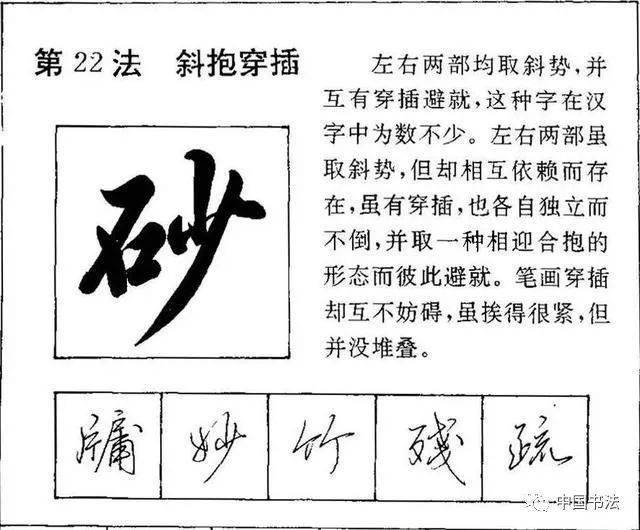 第22法 斜抱穿插
左右两部均取斜势，并
互有穿插避就，这种字在汉
字中为数不少。左右两部虽
取斜势，但却相互依赖而存
在，虽有穿插，也各自独立而
不倒，并取一种相迎合抱的
形态而彼此避就。笔画穿插
却互不妨碍，虽挨得很紧，但
并没堆叠。
砂
牗 妙 竹 残 疏
中国书法